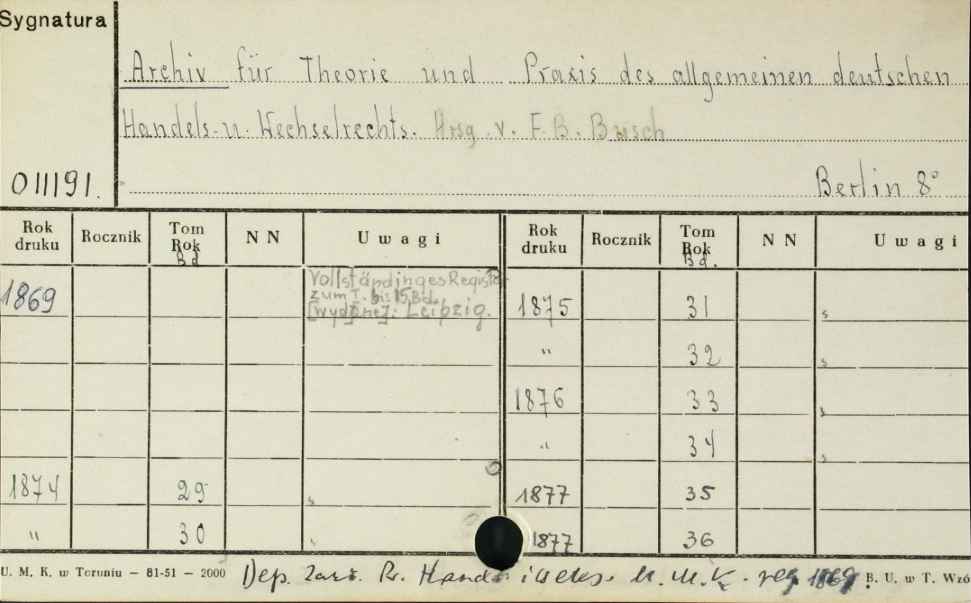 Sygnatura
Archiv für Theorie und Praxis des allgemeinen deutschen
Handels- u. Wechselrechts. Hrsg. v. F. B. Busch
011191.
Berlin 8°
Rok druku Rocznik Tom Rok Bd NN Uwagi Rok druku Rocznik Tom Rok Bd. NN Uwagi
1869 Vollständinges Register
zum I. bis 15. Bd.
Leipzig. 1875 31
" 32
1876 33
" 34
1874 29 1877 35
" 30 1877 36
U. M. K. w Toruniu – 81-51 – 2000 Dep. U. M. K. 1869. B. U. w T. Wzó